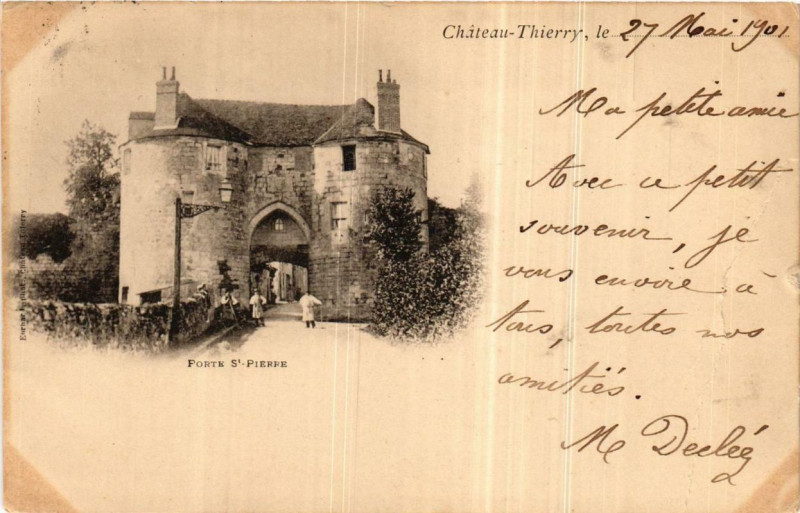 Château-Thierry, le 27 Mai 1901
Ma petite amie
Avec ce petit
souvenir, je
vous envoie à
tous, toutes nos
amitiés.
M
PORTE St-PIERRE